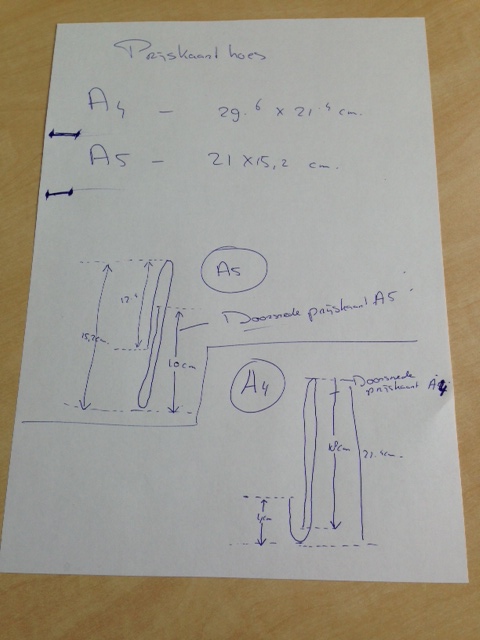 Prijskaart hoes
A4 - 29.6 x 21.4 cm.
A5 - 21 x 15,2 cm.
A5
Doorsnede prijskaart A5
15,2cm
10cm
A4
Doorsnede
prijskaart A4
18cm
21.4cm
4cm